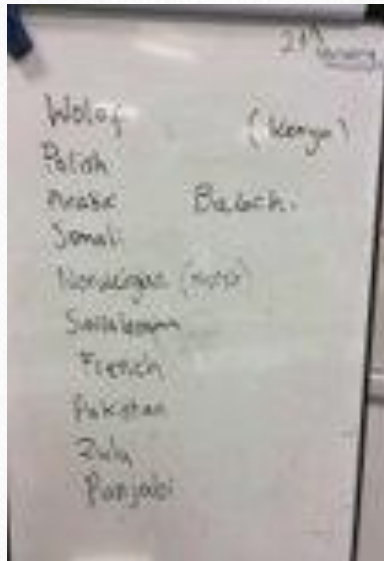 21st January
Wolof (Kenya)
Polish
Arabic Baloch.
Somali
Norweigan
French
Pakistan
Zulu
Punjabi